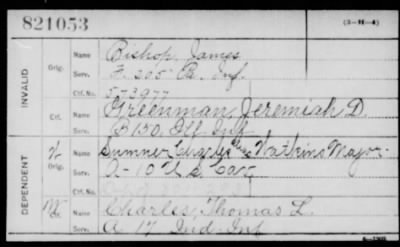 821053 (3-H-4)
INVALID Orig. Name Bishop, James
Serv. F. 205 Pa. Inf.
Ctf. No.
Ctf. Name Greenman, Jeremiah D.
Serv. B 150 Ill Inf
DEPENDENT Name Sumner Charles Watkins Major.
Serv. A-10 U.S. Cav.
Name Charles, Thomas L.
Serv. A 17 Ind. Inf